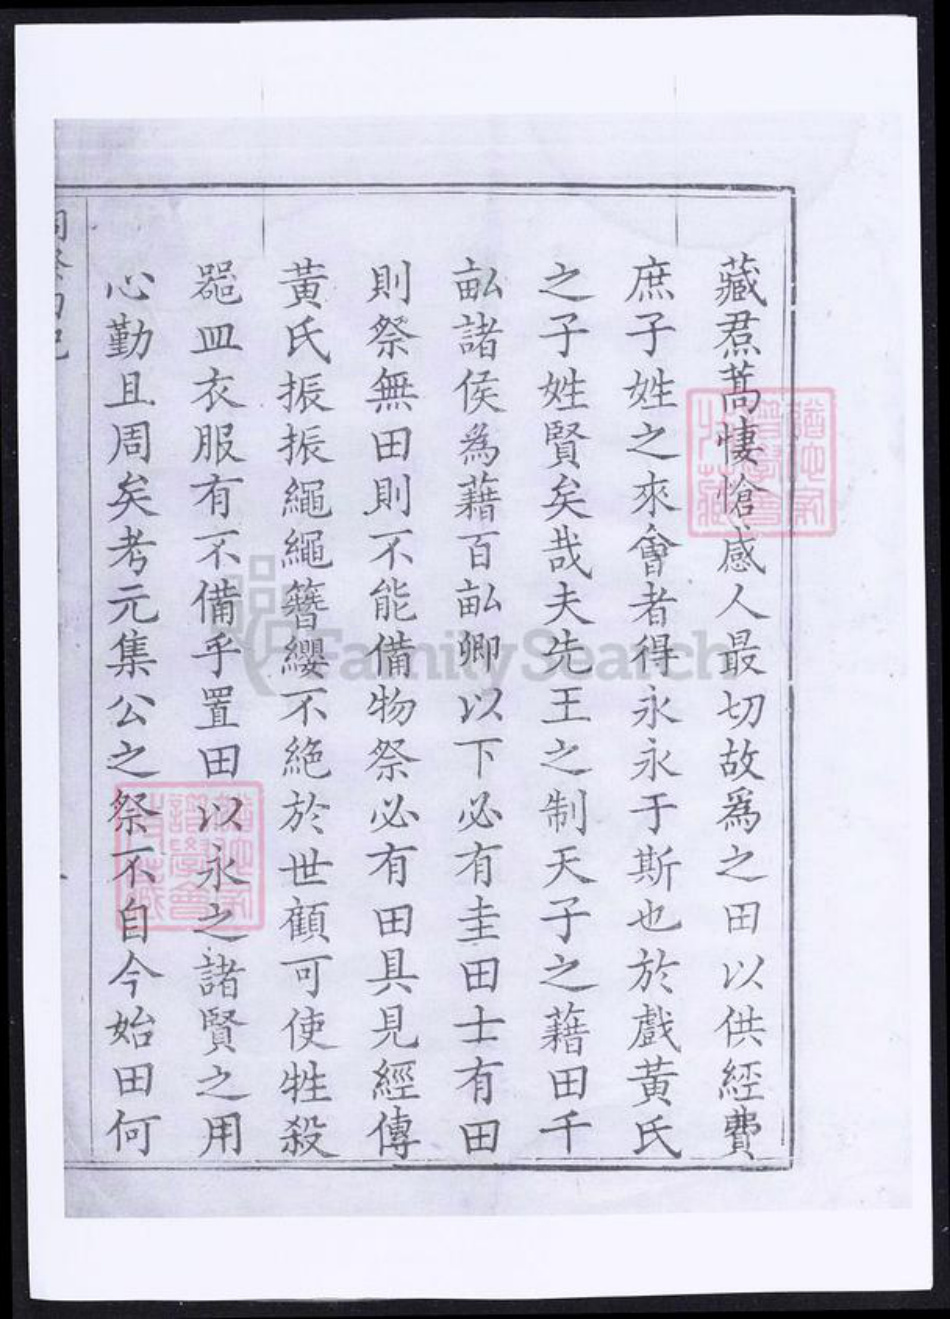 藏焄蒿悽愴感人最切故爲之田以供經費
庶子姓之來會者得永永于斯也於戲黃氏
之子姓賢矣哉夫先王之制天子之藉田千
畝諸侯爲藉百畝卿以下必有圭田士有田
則祭無田則不能備物祭必有田具見經傳
黃氏振振繩繩簪纓不絶於世顧可使牲殺
器皿衣服有不備乎置田以永之諸賢之用
心勤且周矣考元集公之祭不自今始田何
祠祭田記
FamilySearch